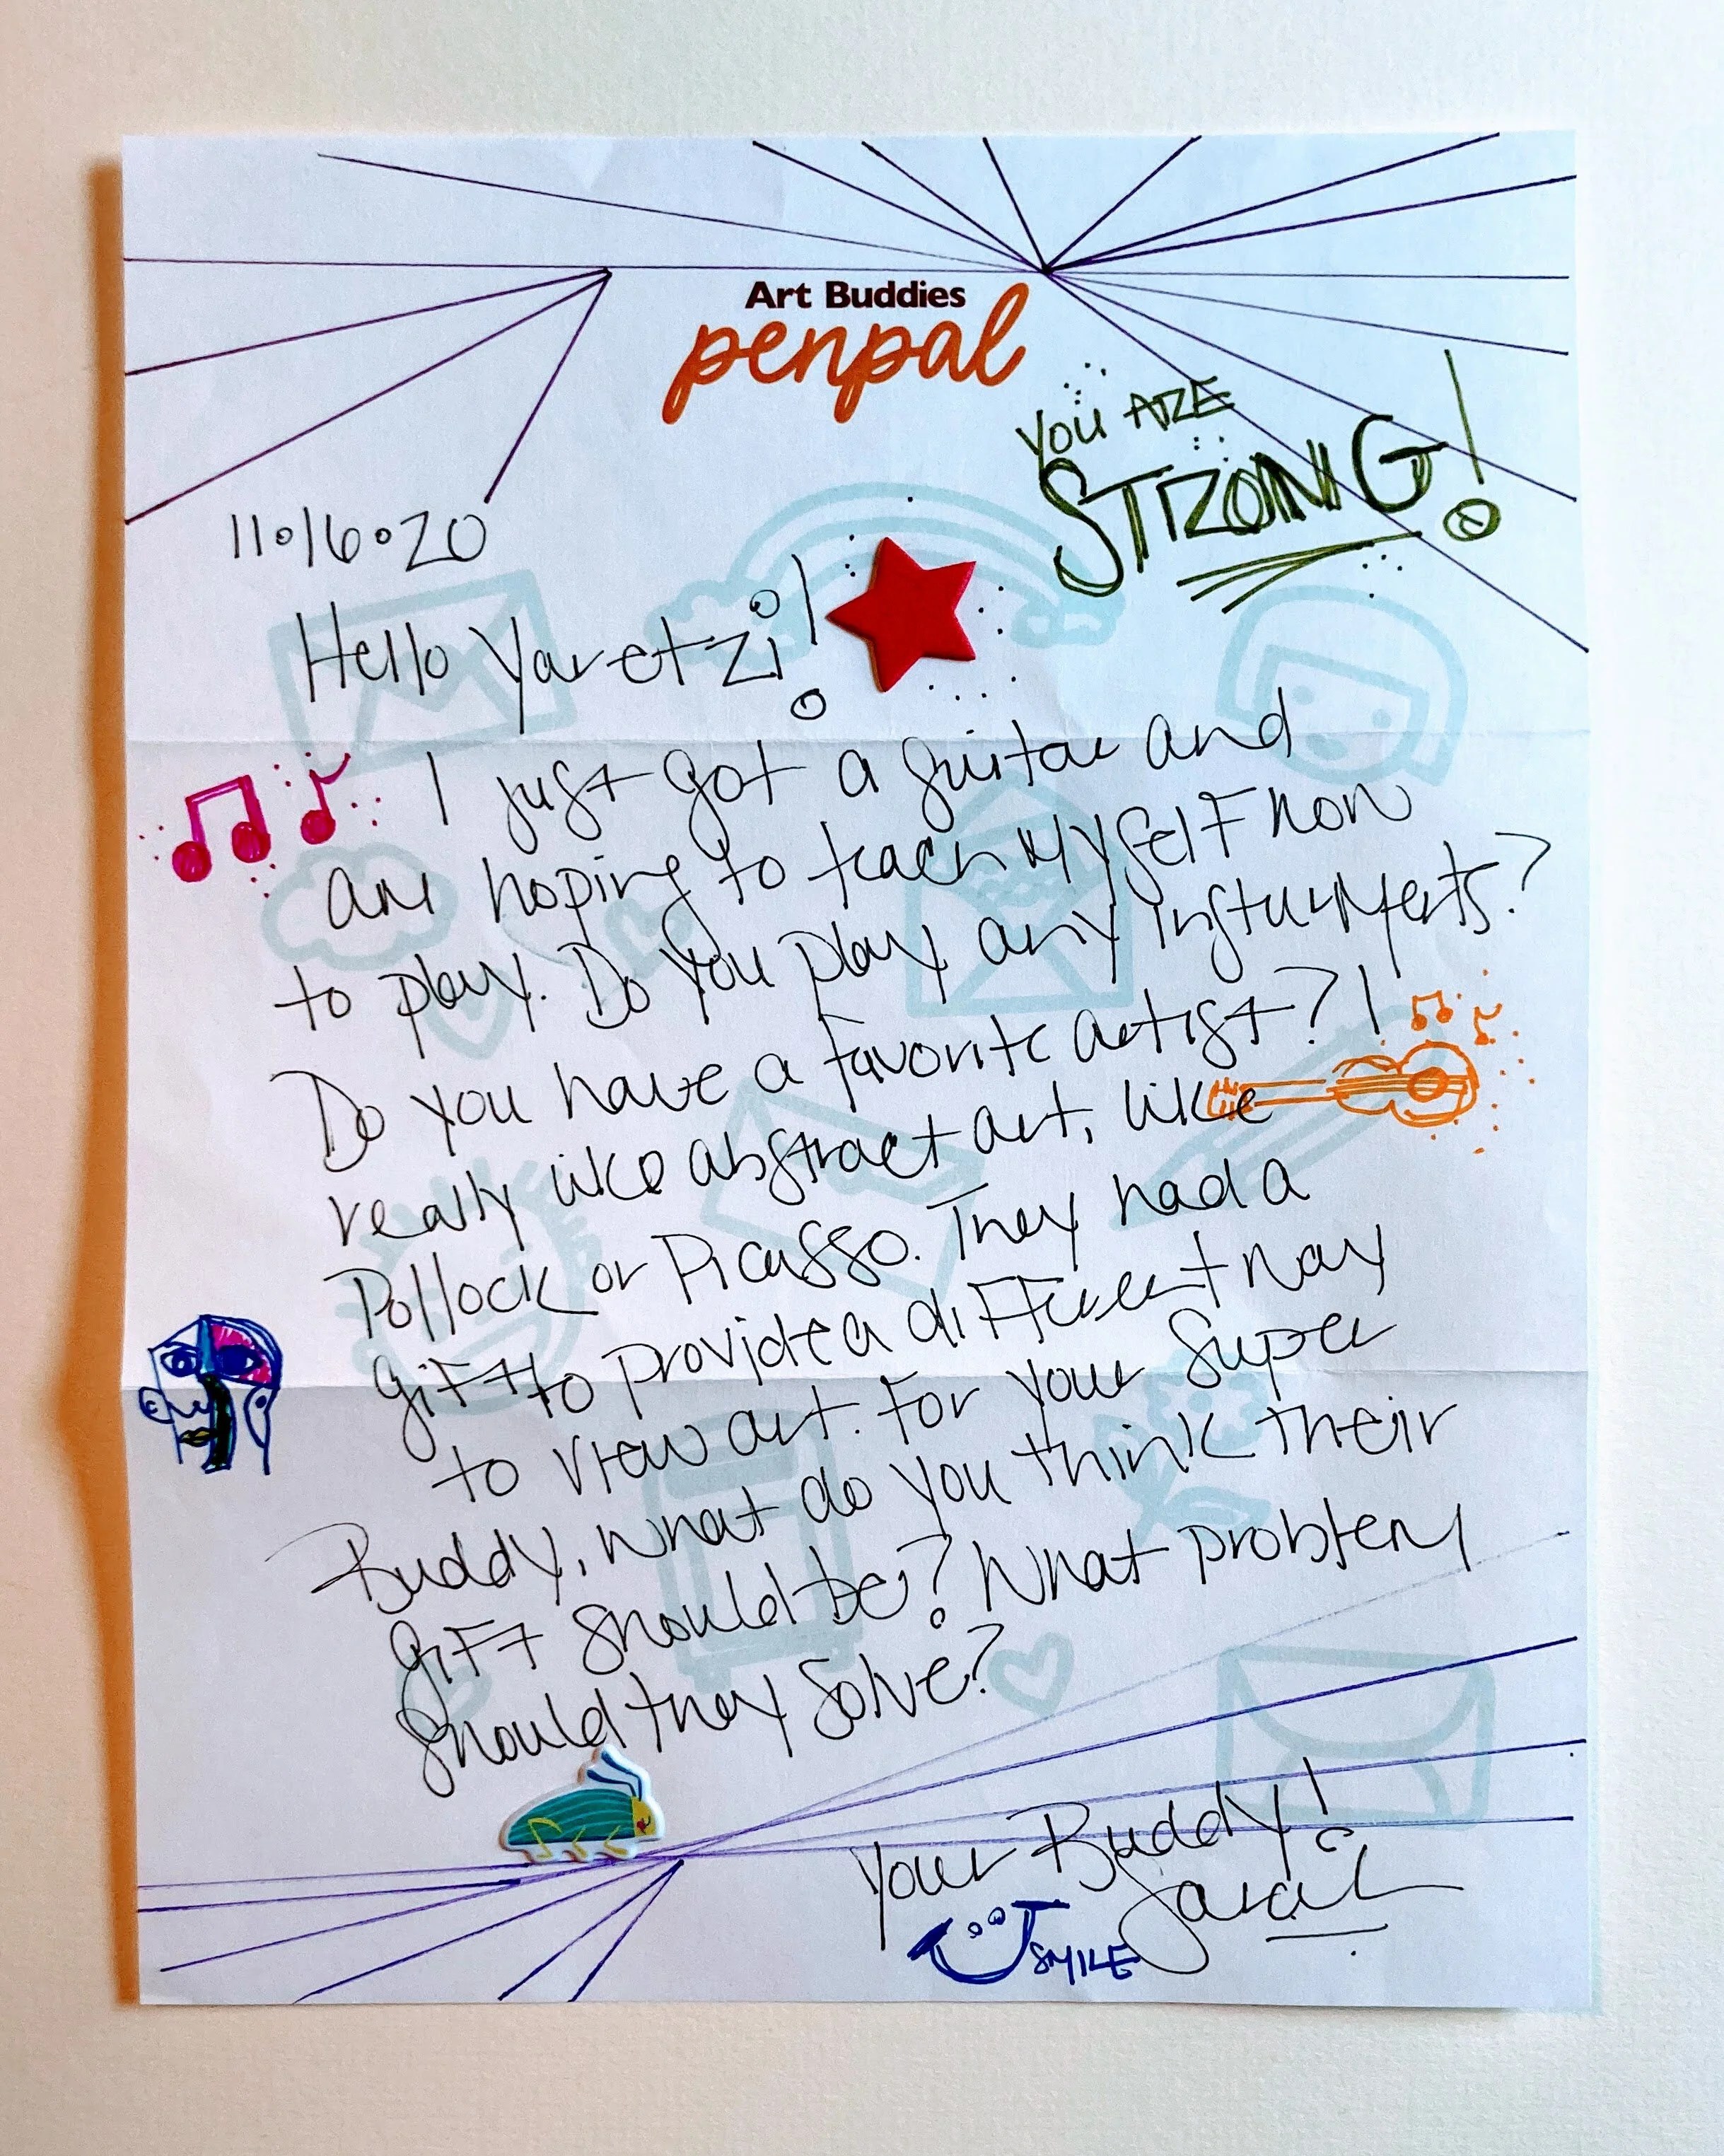 Art Buddies
penpal
YOU ARE
STRONG!
11.16.20
Hello Yaretzi!
I just got a guitar and
am hoping to teach myself how
to play. Do you play any instruments?
Do you have a favorite artist? I
really like abstract art, like
Pollock or Picasso. They had a
gift to provide a different way
to view art. For your Super
Buddy, what do you think their
gift should be? What problem
should they solve?
Your Buddy!
Sarah
SMILE